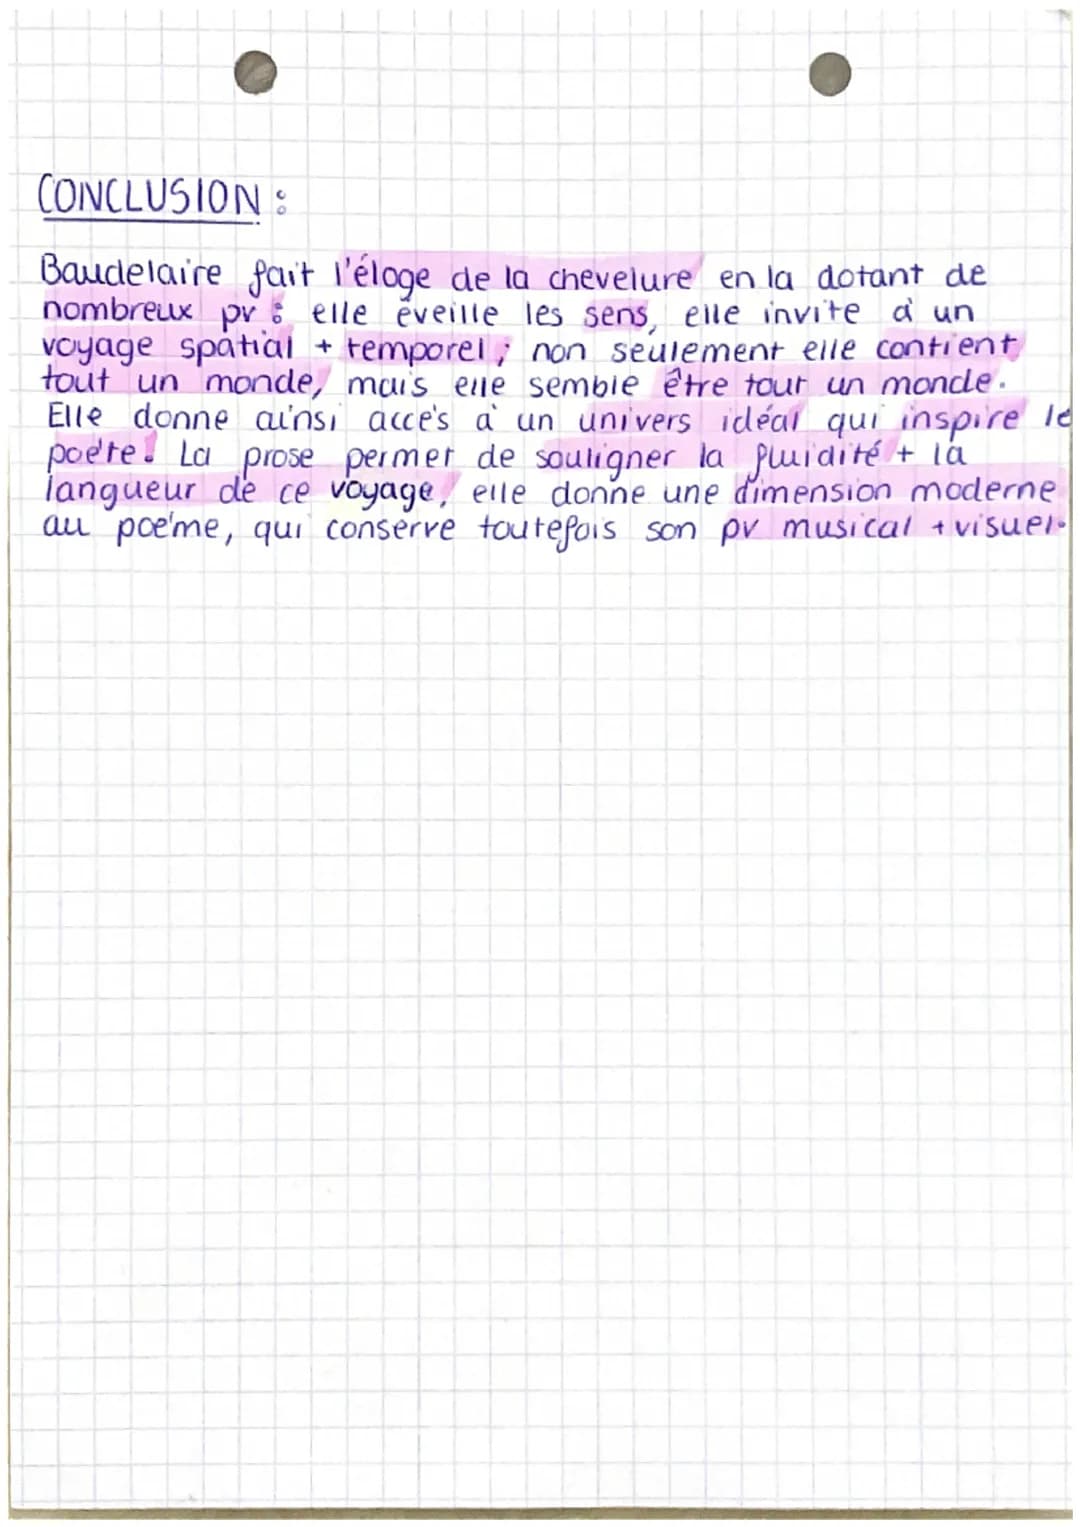 CONCLUSION :
Baudelaire fait l'éloge de la chevelure en la dotant de
nombreux pv : elle éveille les sens, elle invite à un
voyage spatial + temporel ; non seulement elle contient
tout un monde, mais elle semble être tout un monde.
Elle donne ainsi accès à un univers idéal qui inspire le
poète. La prose permet de souligner la fluidité + la
langueur de ce voyage, elle donne une dimension moderne
au poème, qui conserve toutefois son pv musical + visuel.